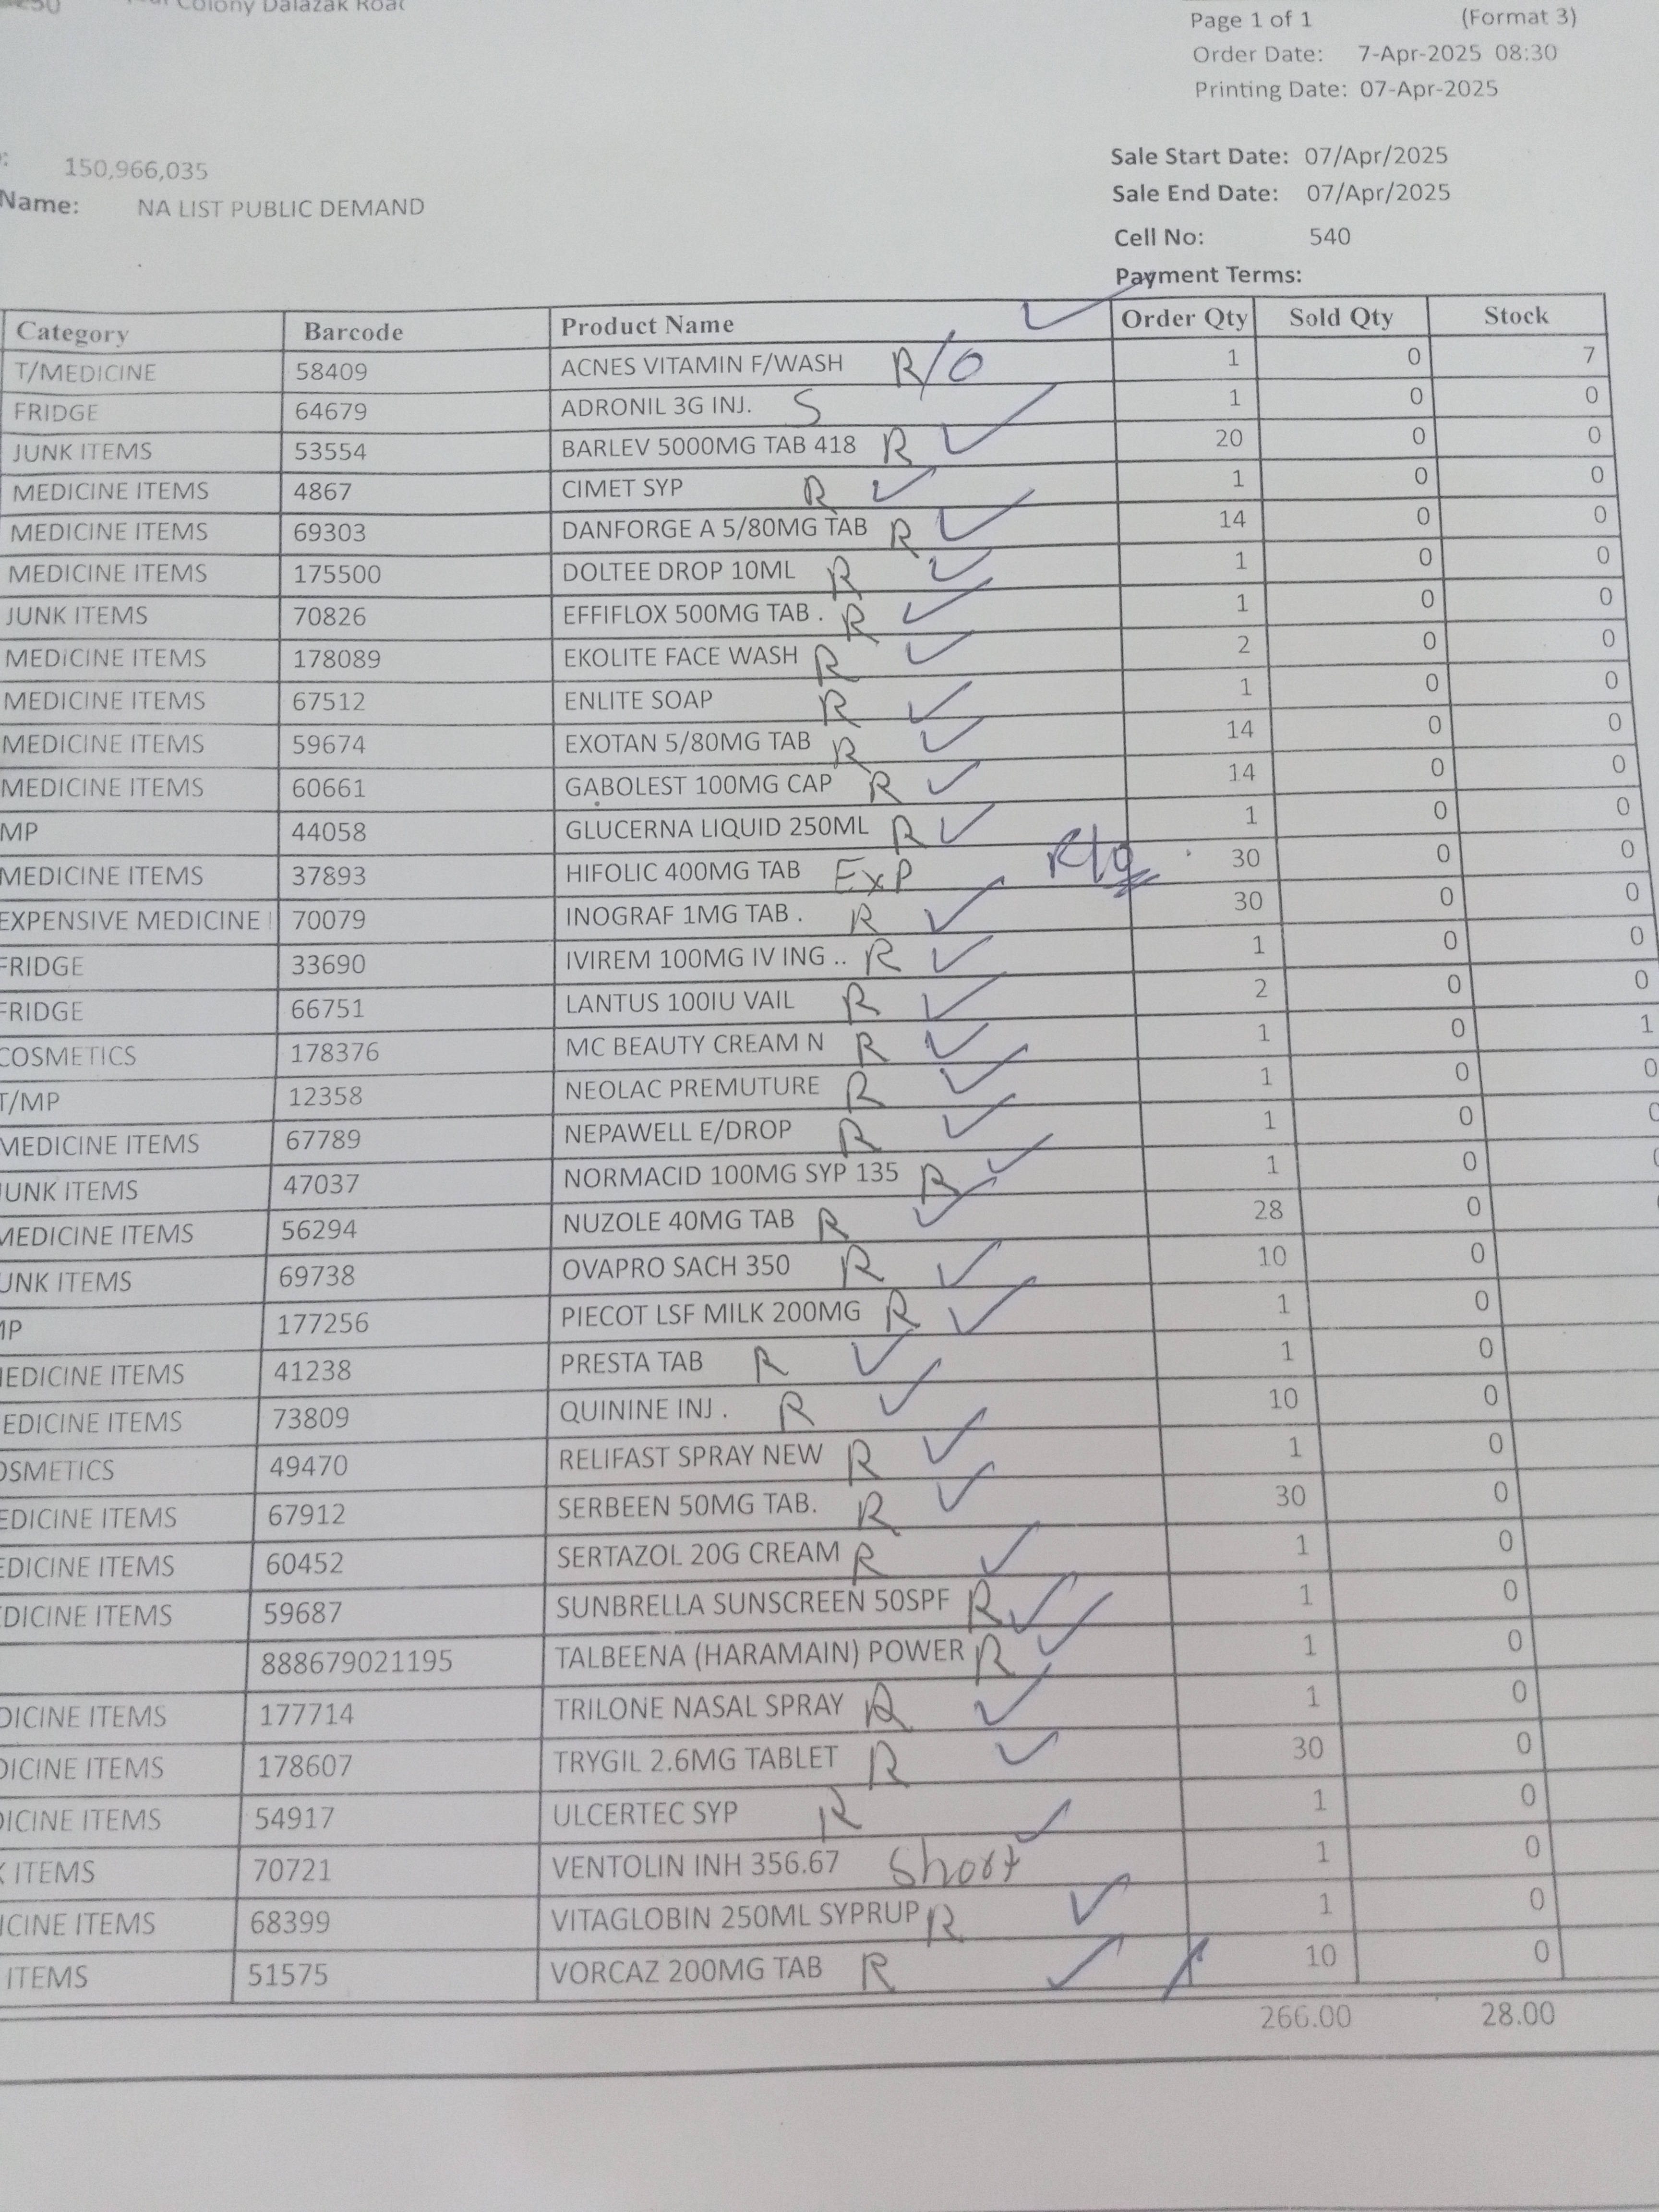 Colony Dalazak Road
Page 1 of 1 (Format 3)
Order Date: 7-Apr-2025 08:30
Printing Date: 07-Apr-2025
150,966,035
Sale Start Date: 07/Apr/2025
Name: NA LIST PUBLIC DEMAND
Sale End Date: 07/Apr/2025
Cell No: 540
Payment Terms:
Category Barcode Product Name Order Qty Sold Qty Stock
T/MEDICINE 58409 ACNES VITAMIN F/WASH R/O 1 0 7
FRIDGE 64679 ADRONIL 3G INJ. S 1 0 0
JUNK ITEMS 53554 BARLEV 5000MG TAB 418 R ✓ 20 0 0
MEDICINE ITEMS 4867 CIMET SYP R ✓ 1 0 0
MEDICINE ITEMS 69303 DANFORGE A 5/80MG TAB R ✓ 14 0 0
MEDICINE ITEMS 175500 DOLTEE DROP 10ML R ✓ 1 0 0
JUNK ITEMS 70826 EFFIFLOX 500MG TAB . R ✓ 1 0 0
MEDICINE ITEMS 178089 EKOLITE FACE WASH R ✓ 2 0 0
MEDICINE ITEMS 67512 ENLITE SOAP R ✓ 1 0 0
MEDICINE ITEMS 59674 EXOTAN 5/80MG TAB R ✓ 14 0 0
MEDICINE ITEMS 60661 GABOLEST 100MG CAP R ✓ 14 0 0
MP 44058 GLUCERNA LIQUID 250ML R ✓ 1 0 0
MEDICINE ITEMS 37893 HIFOLIC 400MG TAB Exp 30 0 0
EXPENSIVE MEDICINE 70079 INOGRAF 1MG TAB . R ✓ 30 0 0
FRIDGE 33690 IVIREM 100MG IV ING .. R ✓ 1 0 0
FRIDGE 66751 LANTUS 100IU VAIL R ✓ 2 0 0
COSMETICS 178376 MC BEAUTY CREAM N R ✓ 1 0 1
T/MP 12358 NEOLAC PREMUTURE R ✓ 1 0 0
MEDICINE ITEMS 67789 NEPAWELL E/DROP R ✓ 1 0 0
JUNK ITEMS 47037 NORMACID 100MG SYP 135 R ✓ 1 0
MEDICINE ITEMS 56294 NUZOLE 40MG TAB R ✓ 28 0
UNK ITEMS 69738 OVAPRO SACH 350 R ✓ 10 0
MP 177256 PIECOT LSF MILK 200MG R ✓ 1 0
MEDICINE ITEMS 41238 PRESTA TAB R ✓ 1 0
EDICINE ITEMS 73809 QUININE INJ . R ✓ 10 0
OSMETICS 49470 RELIFAST SPRAY NEW R ✓ 1 0
EDICINE ITEMS 67912 SERBEEN 50MG TAB. R ✓ 30 0
EDICINE ITEMS 60452 SERTAZOL 20G CREAM R ✓ 1 0
DICINE ITEMS 59687 SUNBRELLA SUNSCREEN 50SPF R ✓ 1 0
888679021195 TALBEENA (HARAMAIN) POWER R ✓ 1 0
DICINE ITEMS 177714 TRILONE NASAL SPRAY R ✓ 1 0
DICINE ITEMS 178607 TRYGIL 2.6MG TABLET R ✓ 30 0
ICINE ITEMS 54917 ULCERTEC SYP R ✓ 1 0
K ITEMS 70721 VENTOLIN INH 356.67 Short 1 0
ICINE ITEMS 68399 VITAGLOBIN 250ML SYPRUP R ✓ 1 0
ITEMS 51575 VORCAZ 200MG TAB R ✓ 10 0
266.00 28.00